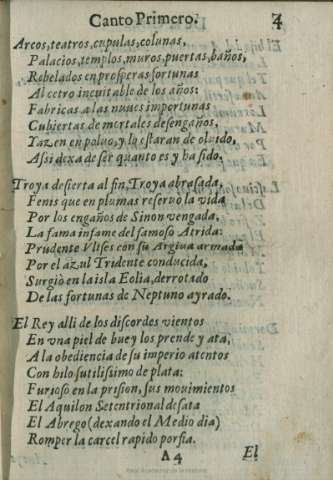 Canto Primero. 4
Arcos, teatros, cupulas, colunas,
Palacios, templos, muros, puertas, baños,
Rebelados en prosperas fortunas
Al cetro ineuitable de los años:
Fabricas a las nuues importunas
Cubiertas de mortales desengaños,
Yazen en poluo, y lo estaran de oluido,
Assi dexa de ser quanto es y ha sido.
Troya desierta al fin, Troya abrasada,
Fenis que en plumas reseruò la vida
Por los engaños de Sinon vengada,
La fama infame del famoso Atrida:
Prudente Vlises con su Argiua armada
Por el azul Tridente conducida,
Surgiò en la isla Eolia, derrotado
De las fortunas de Neptuno ayrado.
El Rey alli de los discordes vientos
En vna piel de buey los prende y ata,
A la obediencia de su imperio atentos
Con hilo sutilissimo de plata:
Furioso en la prision, sus mouimientos
El Aquilon Setentrional desata
El Abrego (dexando el Medio dia)
Romper la carcel rapido porfia.
A 4 El
Real Academia de la Historia